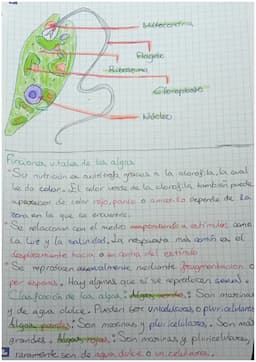 Mitocondria
Flagelo
Ribosoma
Cloroplasto
Núcleo
Funciones vitales de las algas
* Su nutrición es autótrofa gracias a la clorofila, la cual
le da color. El color verde de la clorofila también puede
aparecer de color rojo, pardo o amarillo depende de la
zona en la que se encuentre.
* Se relacionan con el medio respondiendo a estímulos como
la luz y la salinidad. La respuesta más común es el
desplazamiento hacia o en contra del estímulo
* Se reproducen asexualmente mediante fragmentación o
por esporas. Hay algunas que si se reproducen sexual.
Clasificación de las algas: Algas verdes: Son marinas
y de agua dulce. Pueden ser unicelulares o pluricelulares
Algas pardas: Son marinas y pluricelulares. Son más
grandes. Algas rojas: Son marinas y pluricelulares,
raramente son de agua dulce o unicelulares.